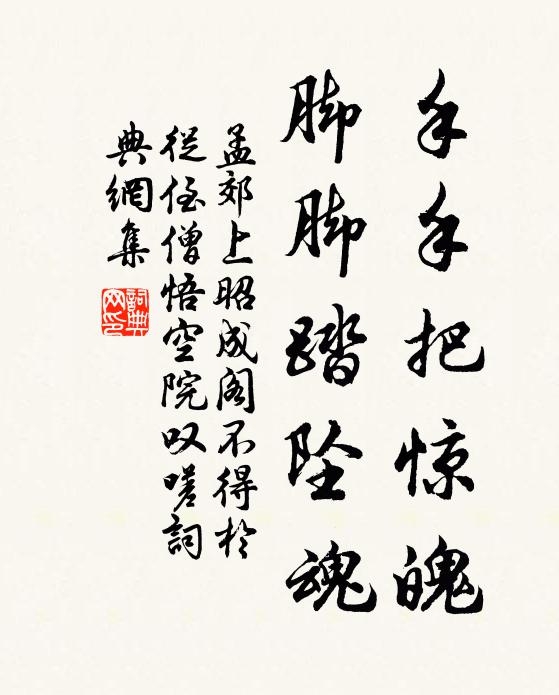 手手把惊魄
脚脚踏坠魂
孟郊上昭成阁不得於
从侄僧悟空院叹嗟詞
典網集
詞典
网印